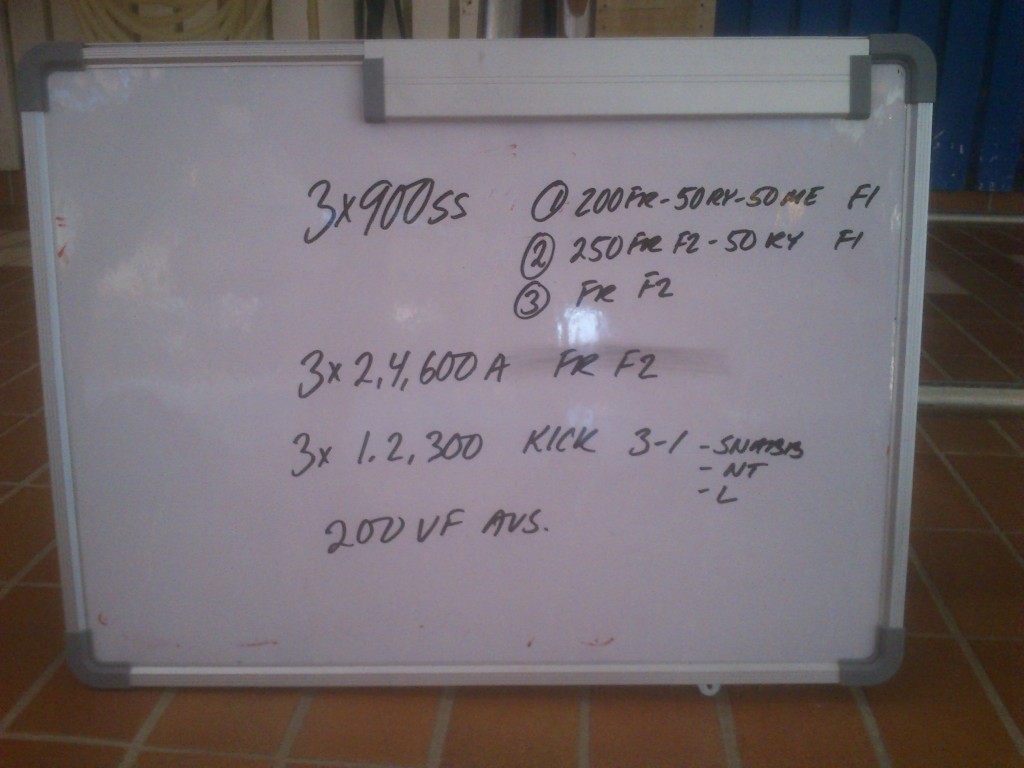 3x900SS ① 200FR-50RY-50ME F1
② 250FR F2-50 RY F1
③ FR F2
3x 2,4,600 A FR F2
3x 1.2,300 KICK 3-1 -SNABB
- NT
- L
200 VF AVS.